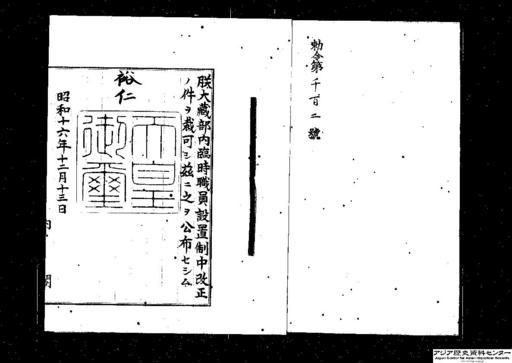 勅令第千百二號
朕大藏部内臨時職員設置制中改正
ノ件ヲ裁可シ茲ニ之ヲ公布セシム
裕仁
天皇御璽
昭和十六年十二月十三日
内閣
アジア歴史資料センター
Japan Center for Asian Historical Records